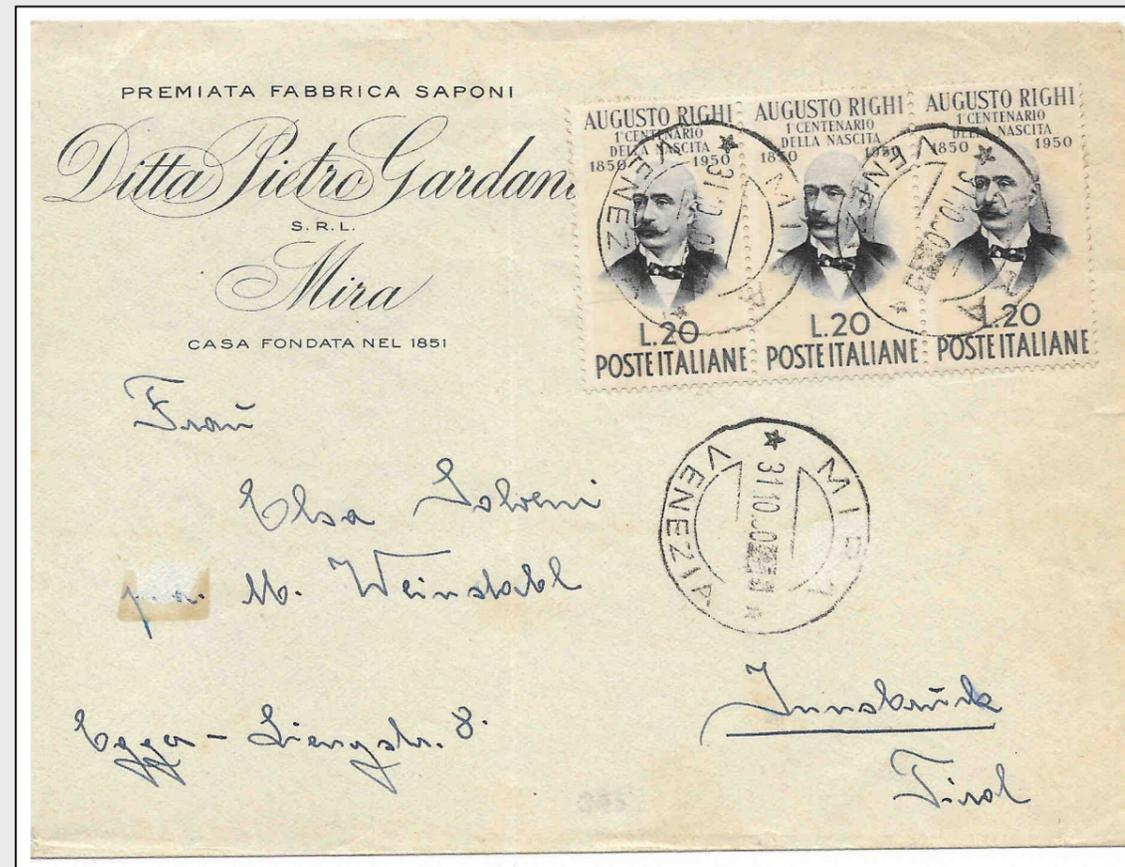 PREMIATA FABBRICA SAPONI
Ditta Pietro Gardani
S.R.L.
Mira
CASA FONDATA NEL 1851
AUGUSTO RIGHI
1° CENTENARIO
DELLA NASCITA
1850 1950
L.20
POSTE ITALIANE
AUGUSTO RIGHI
1° CENTENARIO
DELLA NASCITA
1850 1950
L.20
POSTE ITALIANE
AUGUSTO RIGHI
1° CENTENARIO
DELLA NASCITA
1850 1950
L.20
POSTE ITALIANE
MIRA
VENEZIA
31.10
MIRA
VENEZIA
31.10
MIRA
VENEZIA
31.10
Frau
Elsa
p.a. M. Weindahl
Egger-Lienzstr. 8.
Innsbruck
Tirol